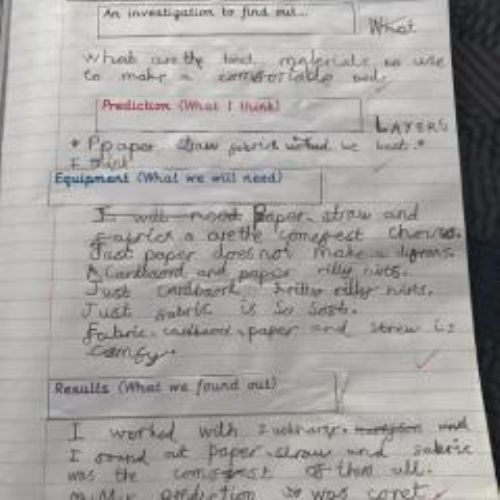 An investigation to find out...
What
What are the best materials to use
to make a comfortable nest.
Prediction (What I think)
LAYERS
* Ppaper straw fabrick would be best. *
I think
Equipment (What we will need)
I will need Paper straw and
fabrick a are the comfest
Just paper does not make a
A Cardbaord and paper rilly hirts.
Just cardbaord rilly hirts.
Just fabric is so soft.
Fabric. cardbaord. paper and straw is
comfy.
Results (What we found out)
I worked with Zachary. and
I found out paper. straw and fabric
was the comfest of them all.
My prediction was coret